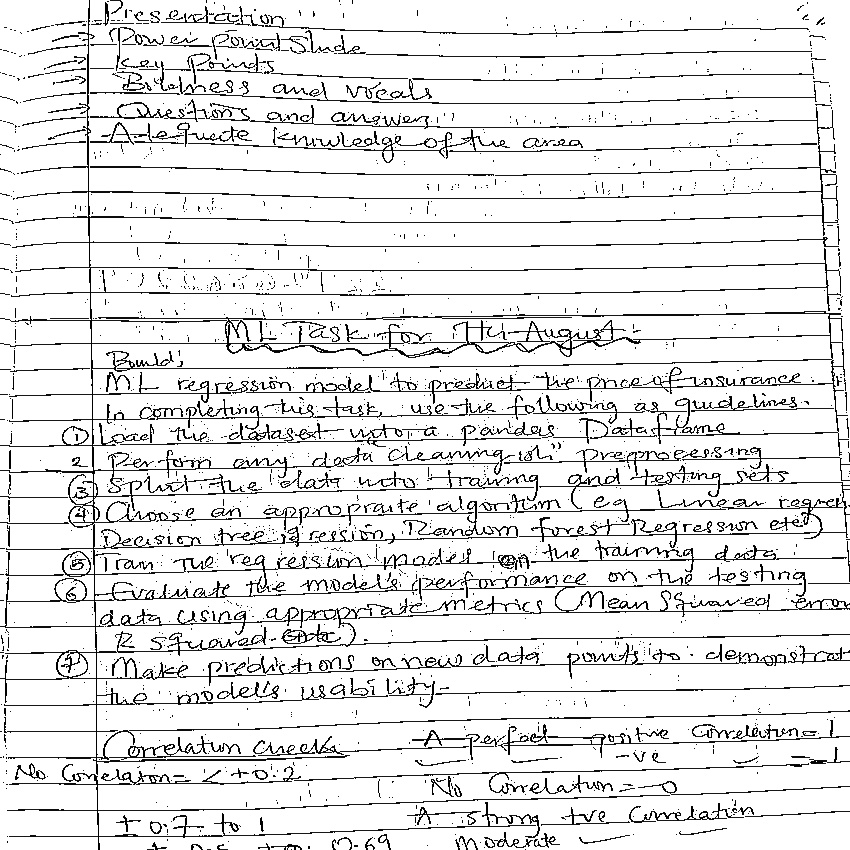 Presentation
→ Power point Slide
→ Key Points
→ Boldness and vocals
→ Questions and answers
→ Adequate knowledge of the area
ML Task for 11th August:
Build;
ML regression model to predict the price of insurance.
In completing this task, use the following as guidelines.
① Load the dataset into a pandas Dataframe
2 Perform any data cleaning or preprocessing
③ Split the data into training and testing sets
④ Choose an appropriate algorithm (eg Linear regren
Decision tree regression, Random forest Regression etc)
⑤ Train the regression model on the training data
⑥ Evaluate the model's performance on the testing
data using appropriate metrics (Mean Squared error
R squared etc).
⑦ Make predictions on new data points to demonstrat
the model's usability
Correlation checks A perfect positive Correlation = 1
-ve = -1
No Correlation = < +0.2
No Correlation = 0
± 0.7 to 1 A strong +ve Correlation
0.69 moderate